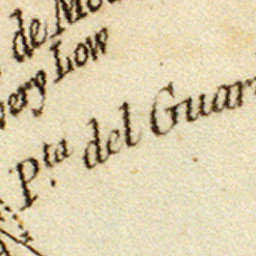 de
very Low
P.ta del Guar